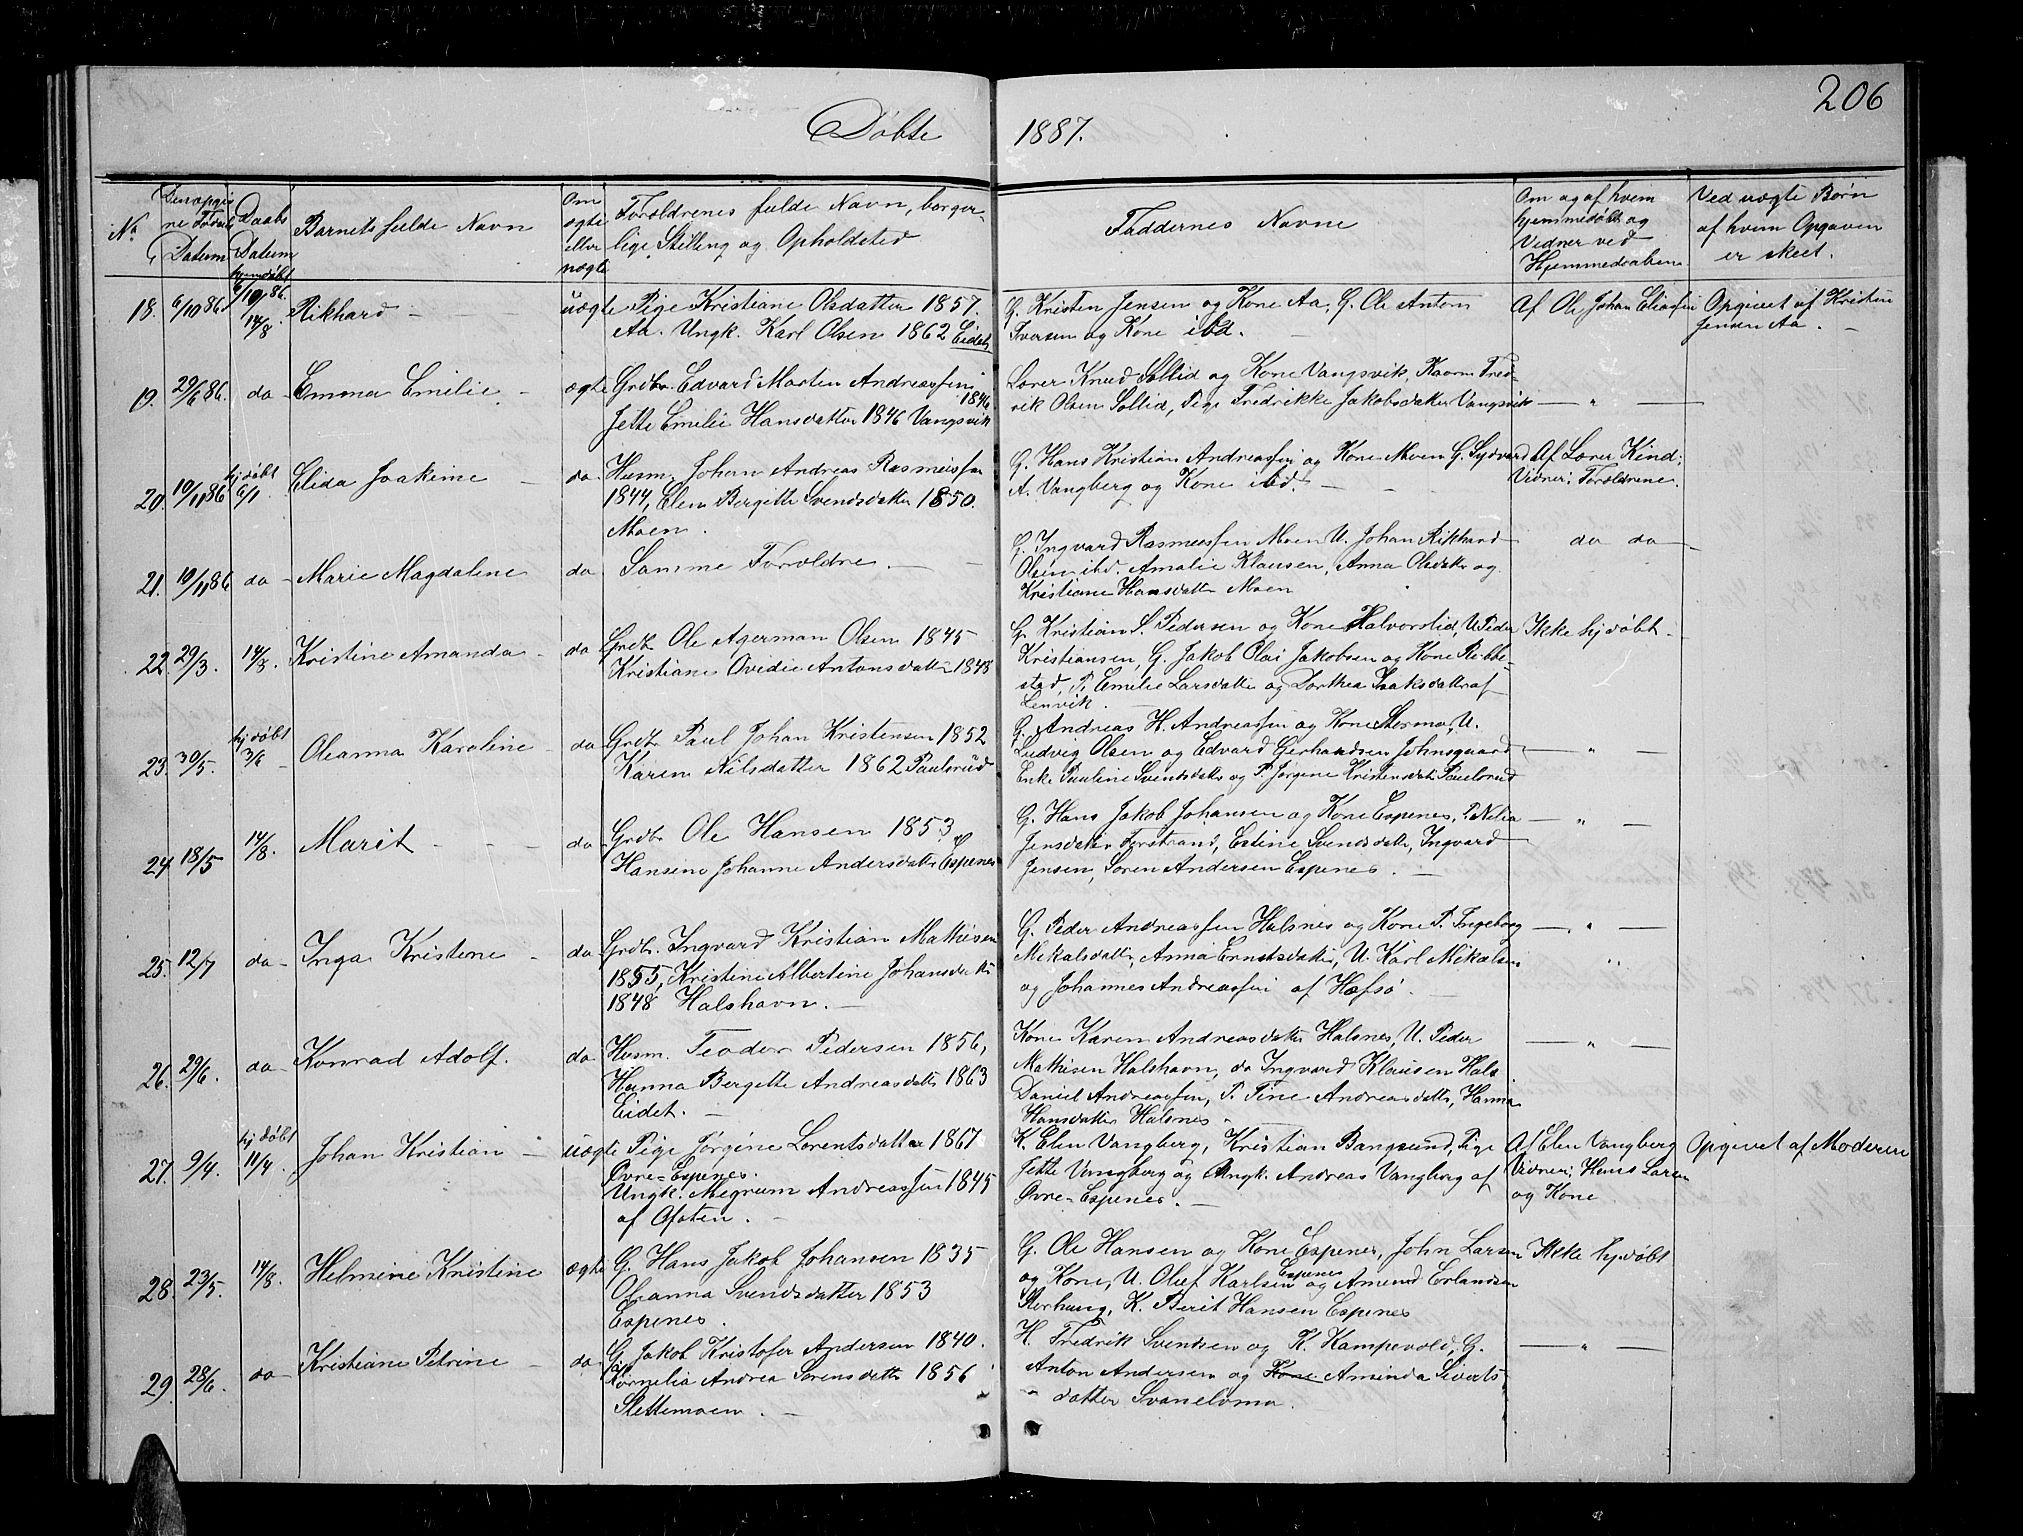 206
Døbte 1887.
No
Datum
Daabs Datum
Barnets fulde Navn
Om ægte eller uægte
Forældrenes fulde Navn, borgerlige Stilling og Opholdsted
Faddernes Navne
Om og af hvem hjemmedøbt og Vidner ved Hjemmedaaben
Ved uægte Børn af hvem Opgaven er skeet.
18. 6/10 86. hjemdøbt 6/10 86. 14/8. Rikhard - uægte Pige Kristiane Olsdatter 1857. G. Kristen Jensen og Kone Aa, G. Ole Antom Af Ole Johan Eliasen Opgivet af Kristen
Aa. Ungk. Karl Olsen 1862 Eidet Iversen og Kone ibd. - Jensen Aa. -
19. 29/6 86. do - Emma Emilie - ægte Grdbr. Edvard Morten Andreassen 1846 Lærer Knud Sollid og Kone Vangsvik, Kaarm Fred-
Jette Emilie Hansdatter 1846 Vangsvik rik Olsen Sollid, Pige Fredrikke Jakobsdatter Vangsvik - " -
20. 10/11 86 hj døbt 6/1 Elida Joakime - do Husm. Johan Andreas Rasmussen G. Hans Kristian Andreassen og Kone Moen G. Sydvard Af Lærer Kind;
1844, Elen Bergitte Svendsdatter 1850. A. Vangberg og Kone ibd. - Vidner; Forældrene.
Moen.
21. 10/11 86 do - Marie Magdaline do Samme Forældre. - G. Ingvard Rasmussen Moen U. Johan Rikhard do do -
Olsen ibd. Amalie Klausen, Anna Olsdatter og
Kristiane Hansdatter Moen
22. 29/3. 14/8. Kristine Amanda - do Grdb. Ole Agerman Olsen 1845 G. Kristian S. Pedersen og Kone Halvorslid, U. Peder Ikke hj døbt -
Kristiane Ovidie Antonsdatter 1848 Kristiansen, G. Jakob Olai Jakobsen og Kone Ribbe-
stad, P. Emilie Larsdatter og Dorthea Isaksdatter af
Lenvik. -
23. 30/5. hj døbt 3/6 - Oleanna Karoline - do Grdbr. Paul Johan Kristensen 1852 G. Andreas H. Andreassen og Kone Stormo, U.
Karen Nilsdatter 1862 Paulsrud Ludvig Olsen og Edvard Gerhardsen Johnsgaard - " -
Enke Pauline Svendsdatter og P. Jørgine Kristensdatter Paulsrud
24. 18/5 14/8. Marit - do - Grdbr. Ole Hansen 1853 G. Hans Jakob Johansen og Kone Espenes, P. Nilia - " -
Hansine Johanne Andersdatter Espenes Jensdatter Forstrand, Estine Svendsdatter, Ingvard
Jensen, Søren Andersen Espenes. -
25. 12/7 do - Inga Kristine - do Grdbr. Ingvard Kristian Mathisen G. Peder Andreassen Halsnes og Kone P. Ingeborg - " -
1855, Kristine Albertine Johansdatter Mikalsdatter, Anna Ernstsdatter, U. Karl Mikalsen "
1848 Halshavn. - og Johannes Andreassen af Hæfsø. -
26. 29/6. do - Konrad Adolf. do - Husm. Teodor Pedersen 1856, Kone Karen Andreasdatter Halsnes, U. Peder - " -
Hanna Bergitte Andreasdatter 1863 Mathisen Halshavn, do Ingvard Klausen Hals
Eidet. - Daniel Andreassen, P. Tine Andreasdatter, Hanna
Hansdatter Halsnes -
27. 9/4. hj døbt 11/4. Johan Kristian - uægte Pige Jørgine Lorentsdatter 1867 K. Elen Vangberg, Kristian Bangsund, Pige Af Elen Vangberg Opgivet af Moderen
Øvre-Espenes. Jette Vangberg og Ungk. Andreas Vangberg af Vidner; Hans Larsen
Ungk. Megrum Andreassen 1845 Øvre-Espenes. - og Kone
af Ofoten. -
28. 23/5. 14/8. Helmine Kristine ægte G. Hans Jakob Johansen 1835 G. Ole Hansen og Kone Espenes, John Larsen Ikke hj døbt
Oleanna Svendsdatter 1853 og Kone, U. Oluf Karlsen Espenes og Amund Erlandsen
Espenes. Storhaug, K. Berit Hansen Espenes
29. 28/6. do - Kristiane Petrine - do - G. Jakob Kristofer Andersen 1840. H. Fredrik Svendsen og K. Kampevold, G. - " -
og Kornelia Andrea Sørensdatter 1856 Anton Andersen og Kone Aminda Siverts-
Slettemoen. - datter Svanelvmo.